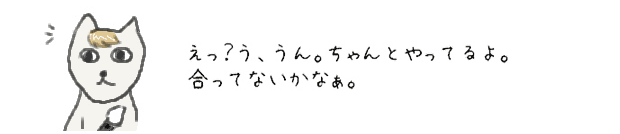 えっ?う、うん。ちゃんとやってるよ。
合ってないかなぁ。